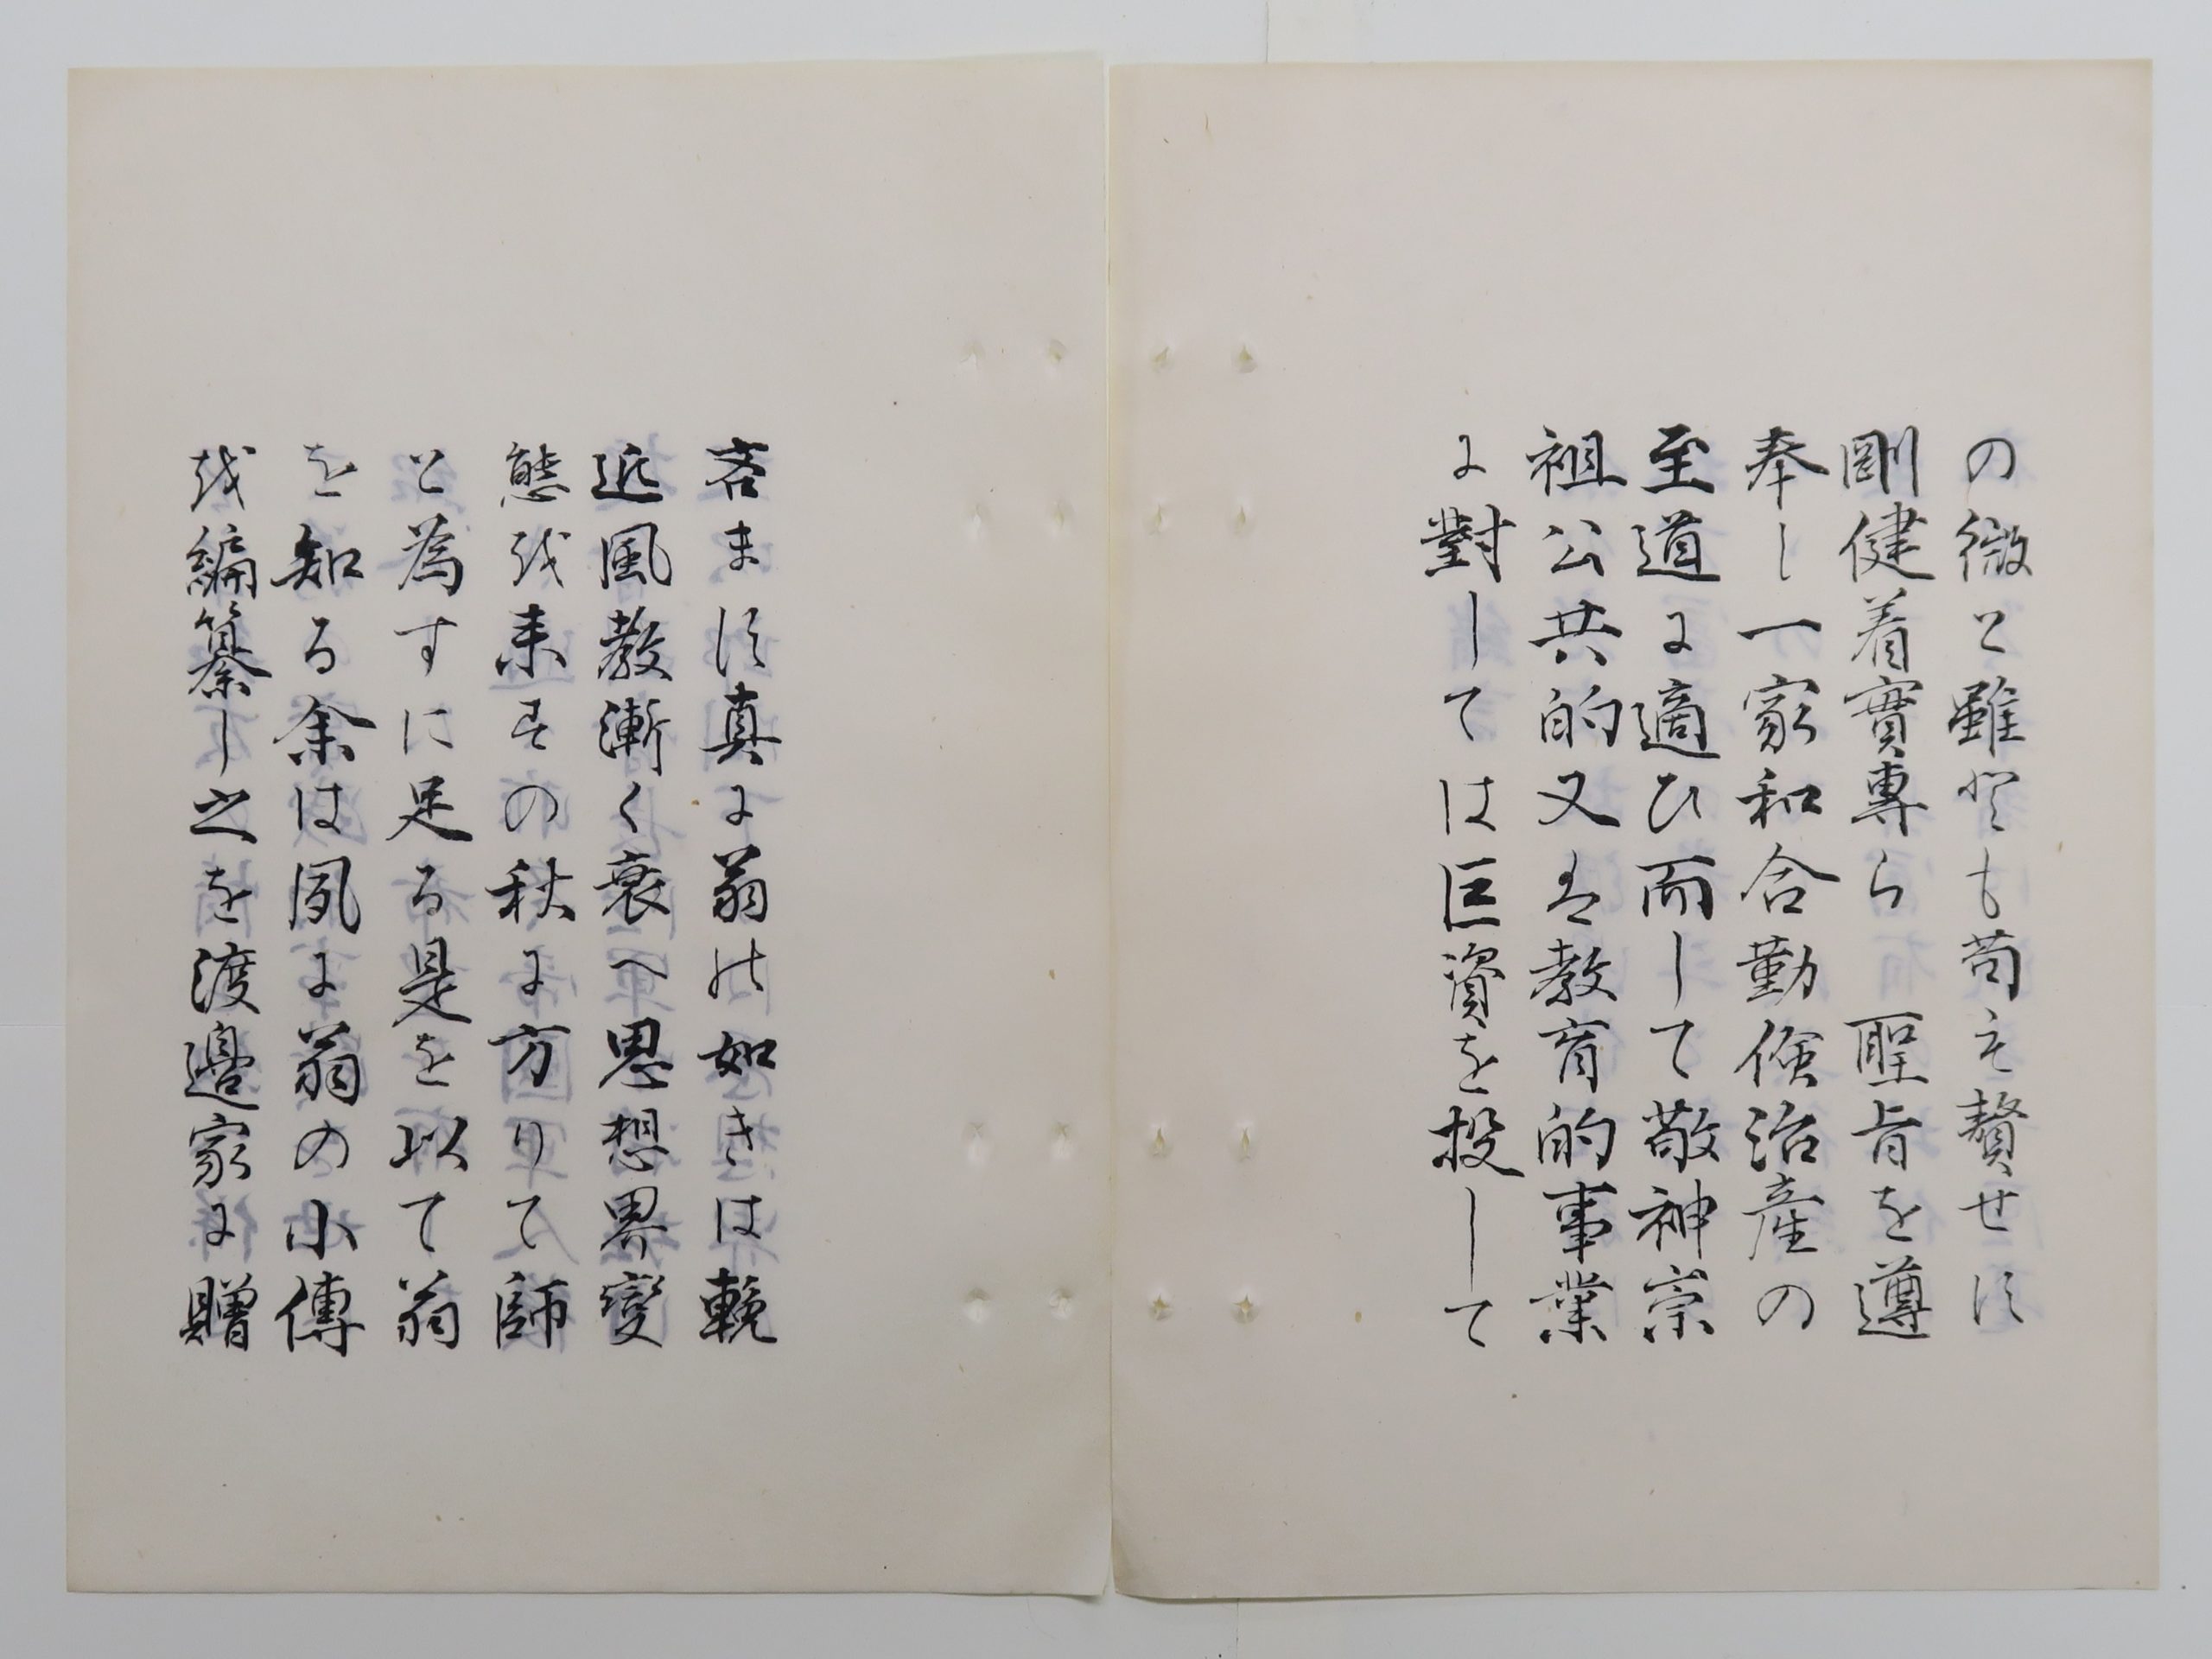 の微と雖とも苟も贅せす
剛健着實專ら　聖旨を遵
奉し一家和合勤倹治産の
至道に適ひ而して敬神崇
祖公共的又は教育的事業
に對しては巨資を投して
吝ます真に翁の如きは輓
近風教漸く衰へ思想界變
態を来すの秋に方りて師
と為すに足る是を以て翁
を知る余は夙に翁の小傳
を編纂し之を渡邉家に贈